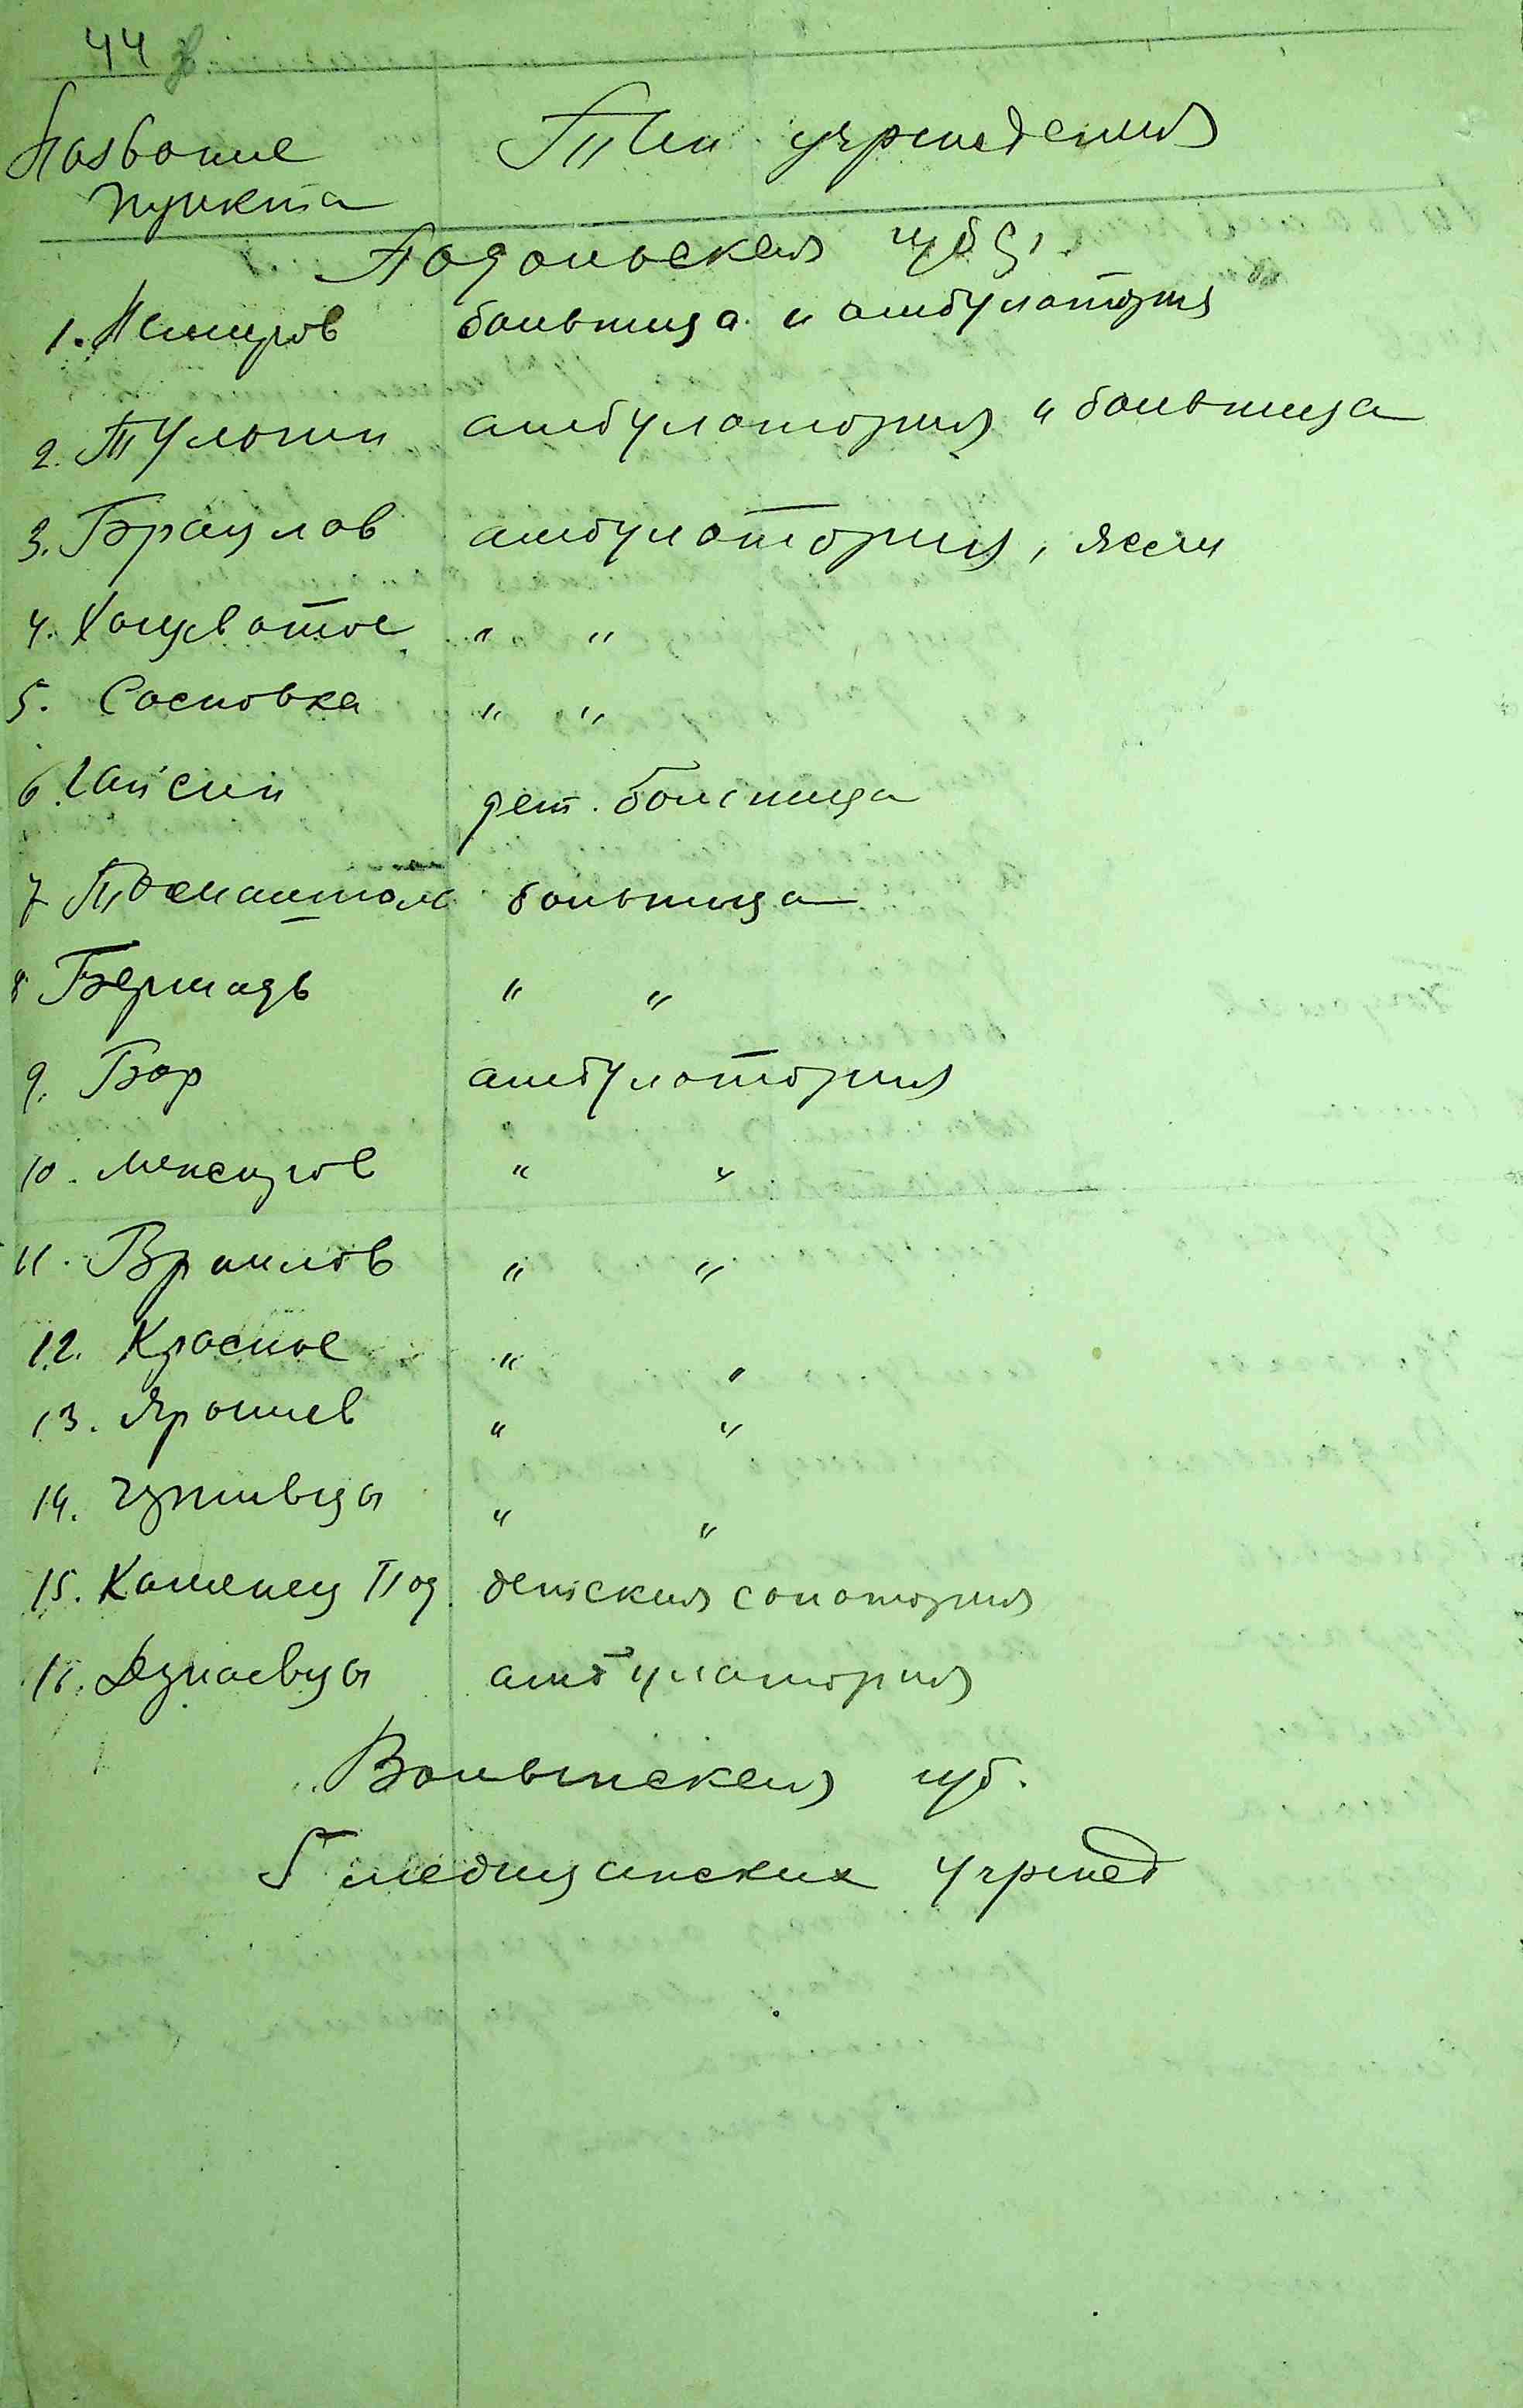 44
Название
пункта
Тип учреждения
Подольская губ.
1. Немиров больница и амбулатория
2. Тульчин амбулатория и больница
3. Браулов амбулатория, ясли
4. Хощеватое " "
5. Сосновка " "
6. Гайсин дет. больница
7 больница
8 Бершадь " "
9. Бар амбулатория
10. Межиров " "
11. Враилов " "
12. Красное " "
13. Ярошев " "
14. Черневцы " "
15. Каменец Под. детская санатория
16. Дунаевцы амбулатория
Волынская губ.
5 медицинских учрежд